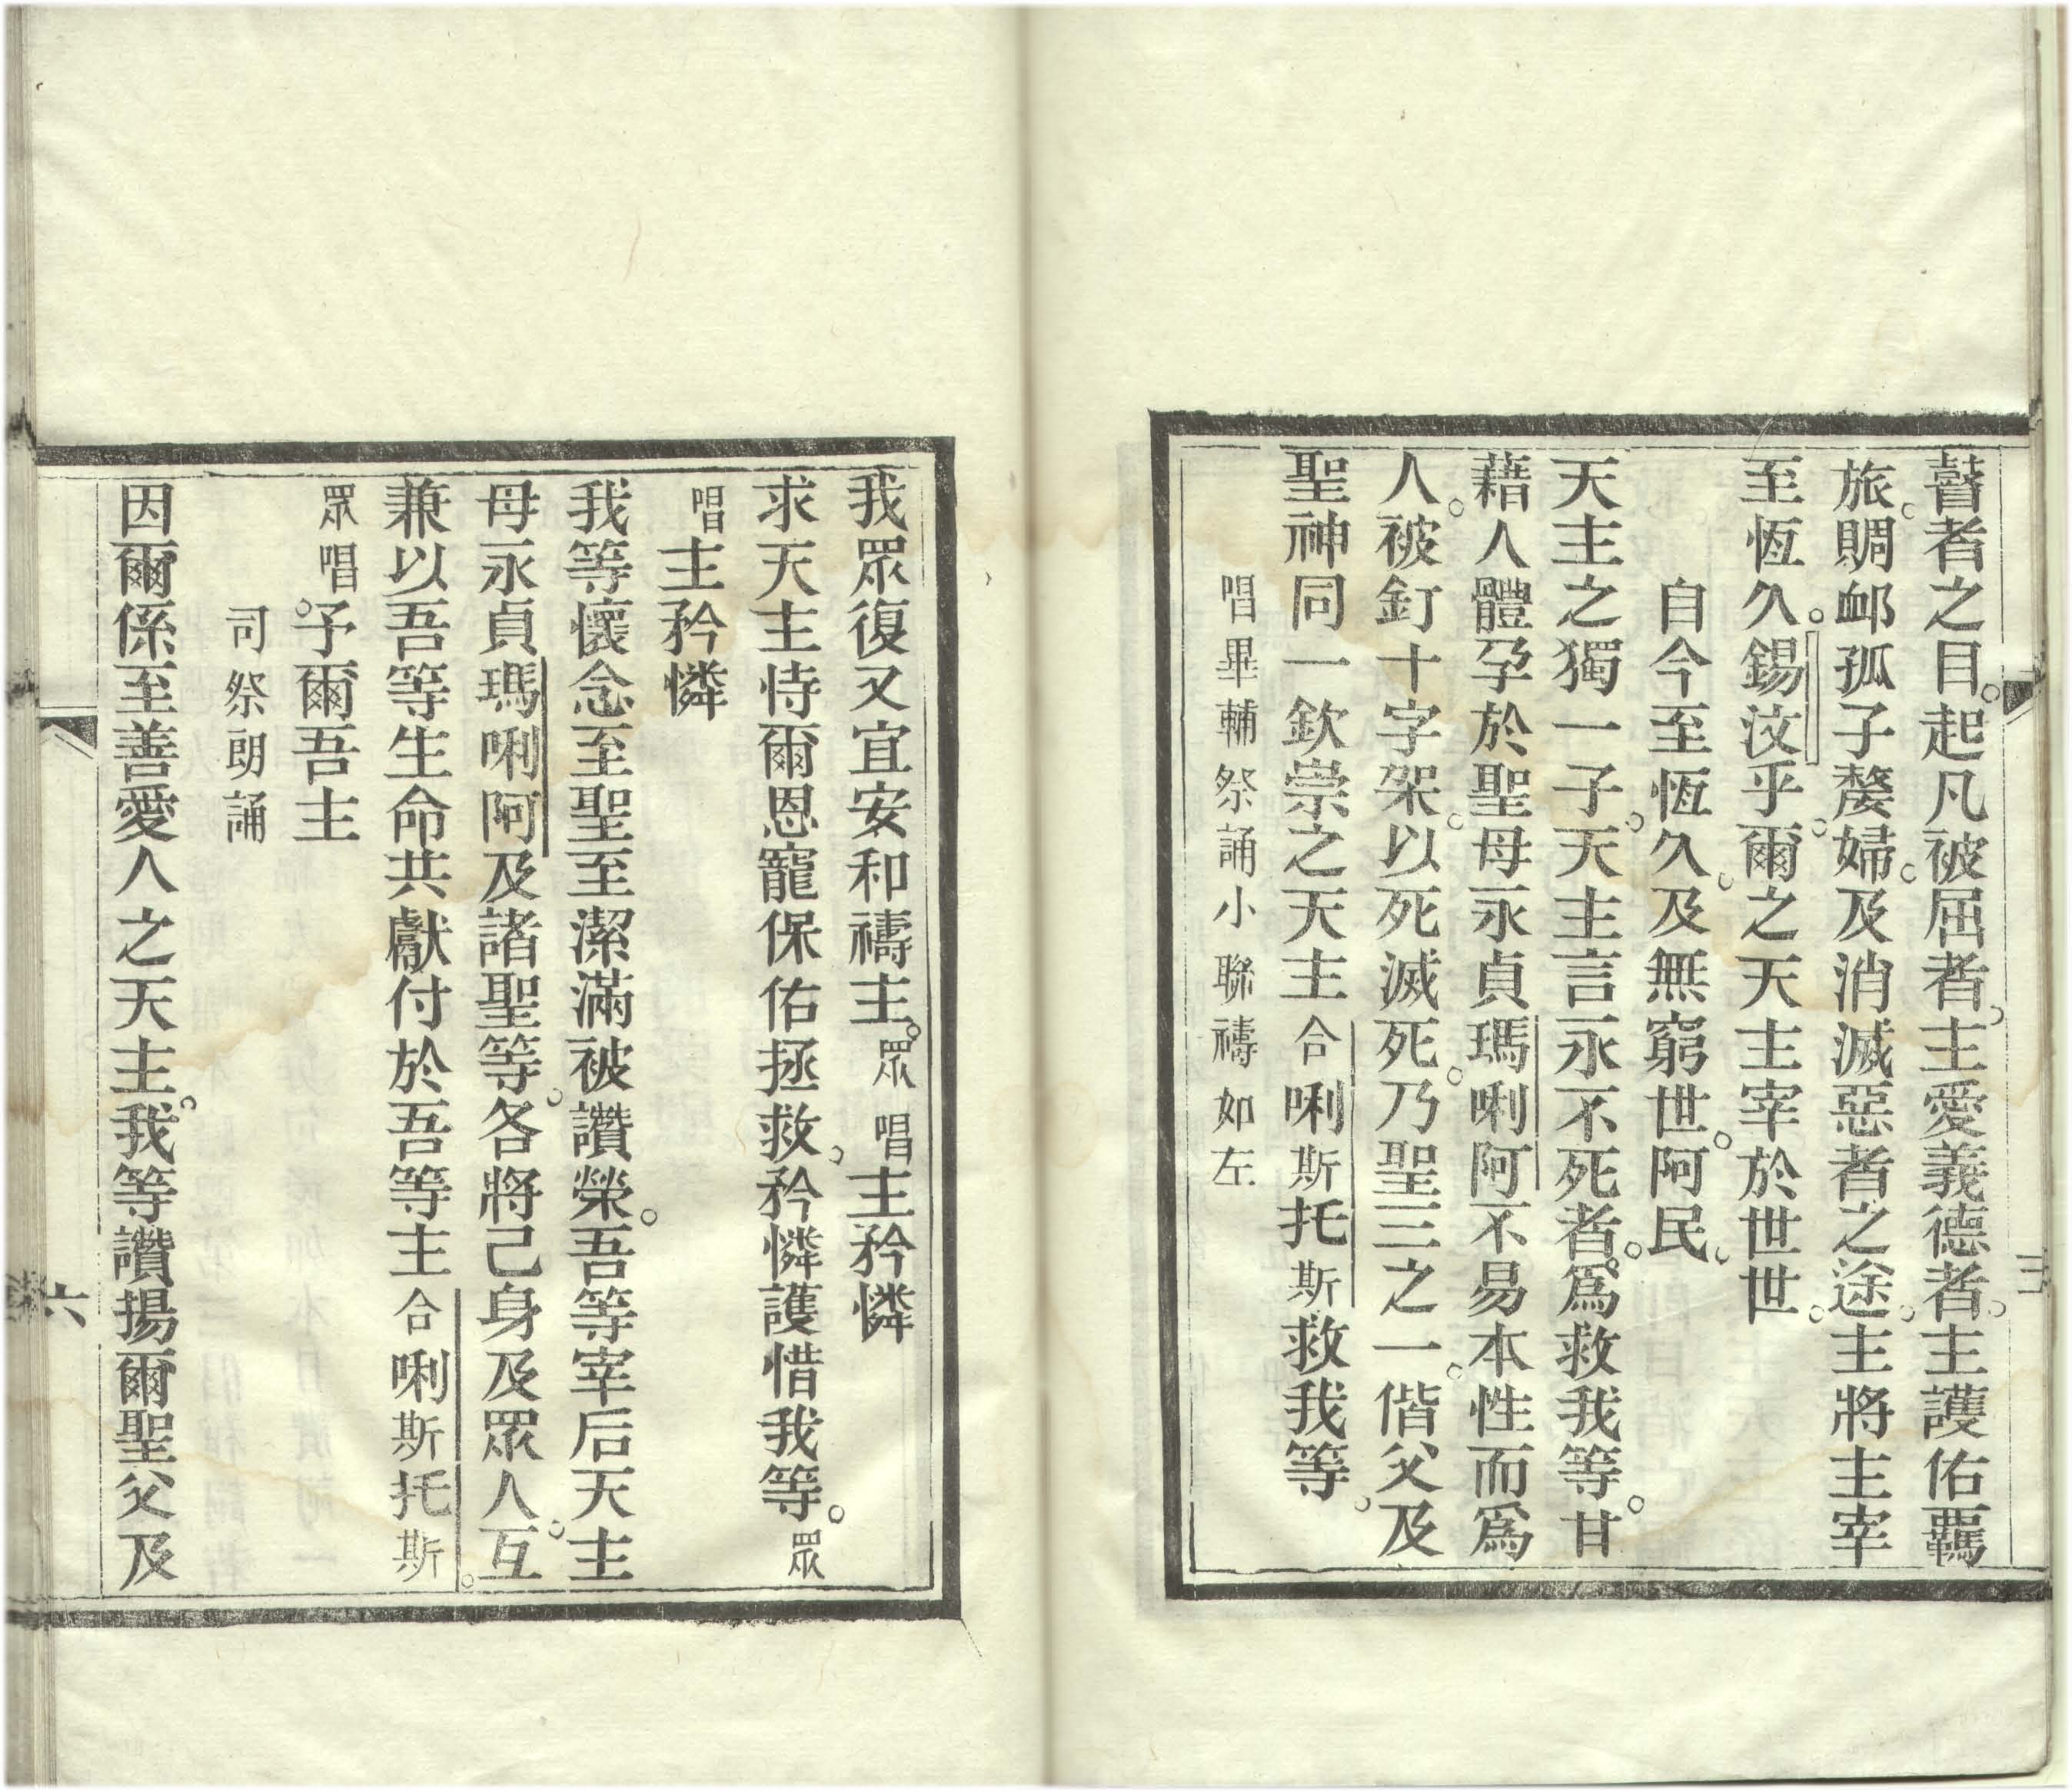 瞽者之目。起凡被屈者。主愛義德者。主護佑羈
旅。賙卹孤子嫠婦。及消滅惡者之途。主將主宰
至恆久。錫汶乎。爾之天主宰於世世。
自今至恆久。及無窮世。阿民。
天主之獨一子。天主言永不死者。爲救我等。甘
藉人體孕於聖母永貞瑪唎阿不易本性而爲
人。被釘十字架。以死滅死。乃聖三之一。偕父及
聖神同一欽崇之天主合唎斯托斯救我等。
唱畢輔祭誦小聯禱如左
我眾復又宜安和禱主。眾唱主矜憐
求天主恃爾恩寵保佑拯救。矜憐護惜我等。眾
唱主矜憐
我等懷念至聖至潔滿被讚榮。吾等宰后天主
母永貞瑪唎阿及諸聖等。各將己身及眾人。互
兼以吾等生命共獻付於吾等主合唎斯托斯。
眾唱。予爾吾主
司祭朗誦
因爾係至善愛人之天主。我等讚揚爾聖父及
六